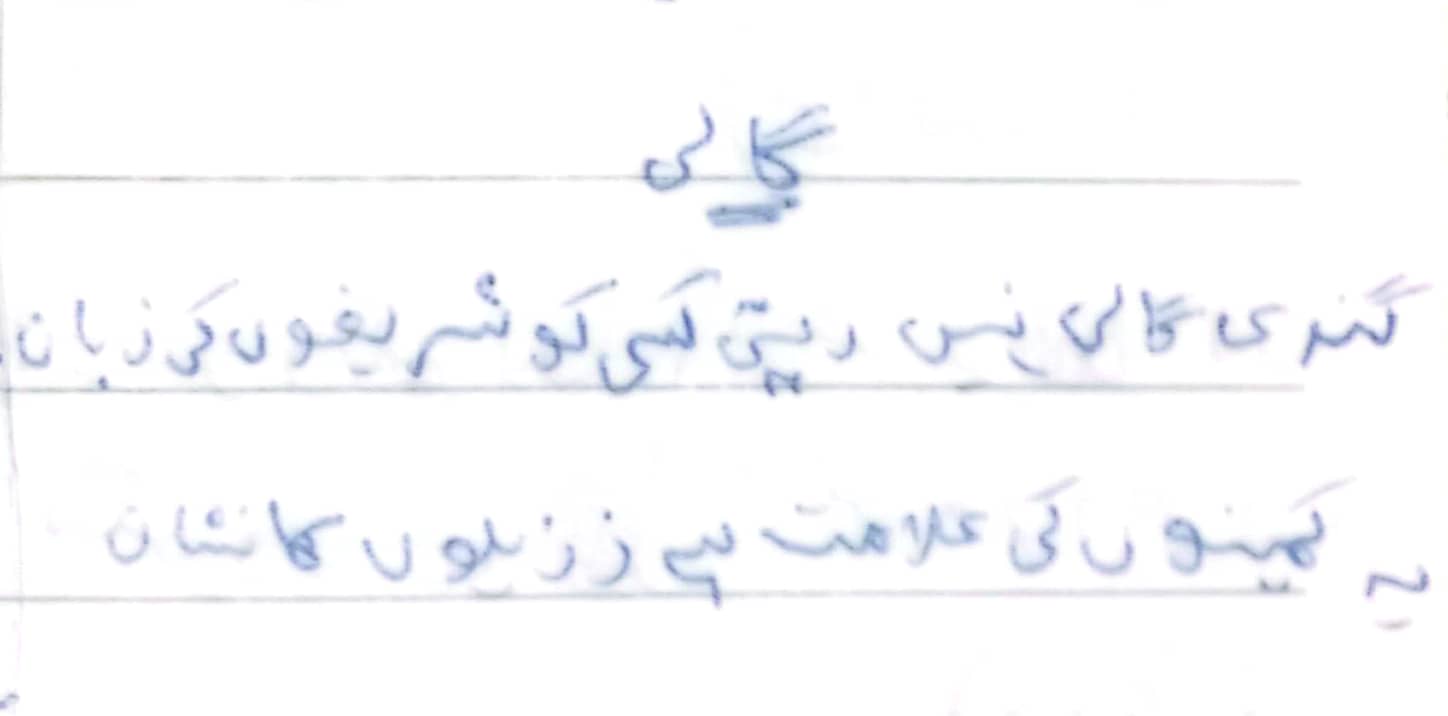 گالی
گندی گالی نہیں دیتی کسی کو شریفوں کی زبان
یہ کمینوں کی علامت ہے رزیلوں کا نشان